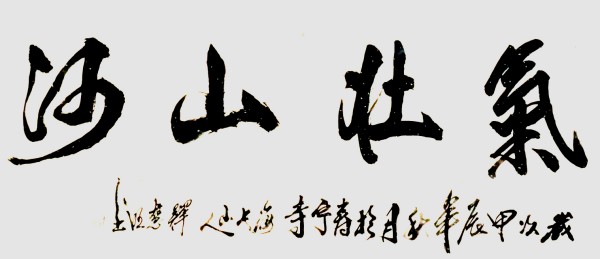 氣壯山河
歲次甲辰年秋月於壽寧寺海上山人釋慧